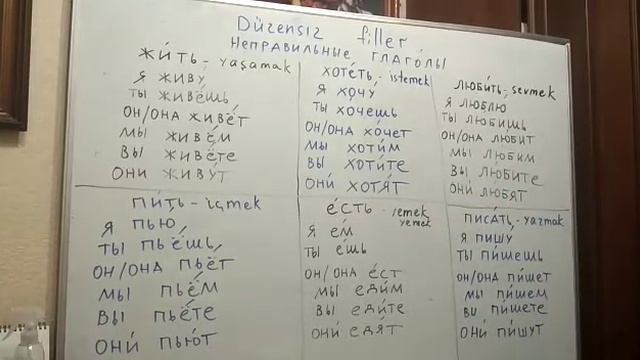 Düzensiz filler
НЕПРАВИЛЬНЫЕ ГЛАГО́ЛЫ
ЖИ́ТЬ - yaşamak
Я ЖИВУ́
ТЫ ЖИВЁШЬ
ОН/ОНА ЖИВЁТ
МЫ ЖИВЁМ
ВЫ ЖИВЁТЕ
ОНИ ЖИВУ́Т
ХОТЕ́ТЬ, - istemek
Я ХОЧУ́
ТЫ ХО́ЧЕШЬ
ОН/ОНА ХО́ЧЕТ
МЫ ХОТИ́М
ВЫ ХОТИ́ТЕ
ОНИ́ ХОТЯ́Т
ЛЮБИ́ТЬ, - sevmek
Я ЛЮБЛЮ
ТЫ ЛЮБИШЬ
ОН/ОНА ЛЮБИТ
МЫ ЛЮБИМ
ВЫ ЛЮБИТЕ
ОНИ́ ЛЮБЯТ
ПИ́ТЬ - içmek
Я ПЬЮ
ТЫ ПЬЁШЬ
ОН/ОНА ПЬЁТ
МЫ ПЬЁМ
ВЫ ПЬЁТЕ
ОНИ́ ПЬЮ́Т
Е́СТЬ - yemek
Я ЕМ
ТЫ Е́ШЬ
ОН/ОНА Е́СТ
МЫ ЕДИ́М
ВЫ ЕДИ́ТЕ
ОНИ́ ЕДЯ́Т
ПИСА́ТЬ, - yazmak
Я ПИШУ́
ТЫ ПИ́ШЕШЬ
ОН/ОНА ПИ́ШЕТ
МЫ ПИ́ШЕМ
ВЫ ПИ́ШЕТЕ
ОНИ́ ПИ́ШУТ